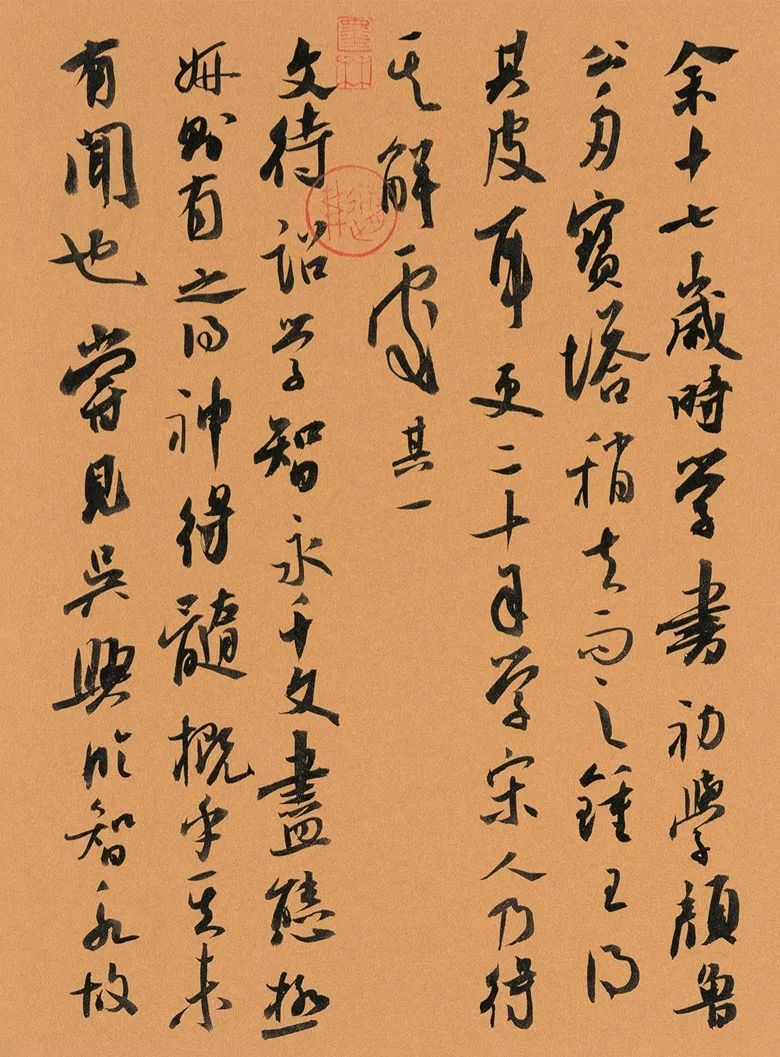 余十七歲時学書初學顏魯
公多寶塔稍去而之鍾王得
其皮耳更二十年学宋人乃得
其解處其一
文待詔学智永千文盡態極
妍則有之得神得髓概乎其未
有聞也嘗見吳興臨智永故